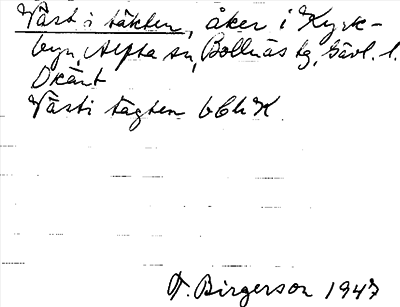 Väst i täkten, åker i Kyrk-
byn, Alfta sn, Bollnäs tg, Gävl. l.
Okänt
Västi tägten bbhK.
T. Birgerson 1947